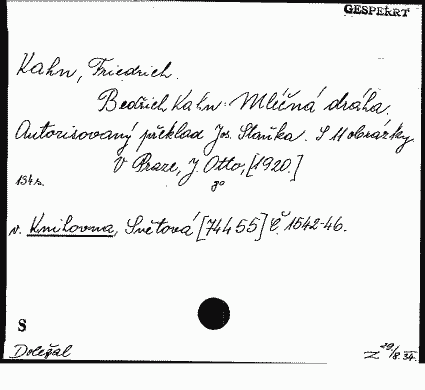 GESPERRT
Kahn, Friedrich.
Bedřich Kahn: Mléčná dráha,
Autorisovaný překlad Jos. Staňka. S 11 obrázky
V Praze, J. Otto, [1920.]
134 s. 8°
v. Knihovna, Světová [74455] č. 1542-46.
S
Doležal 29/8.34.